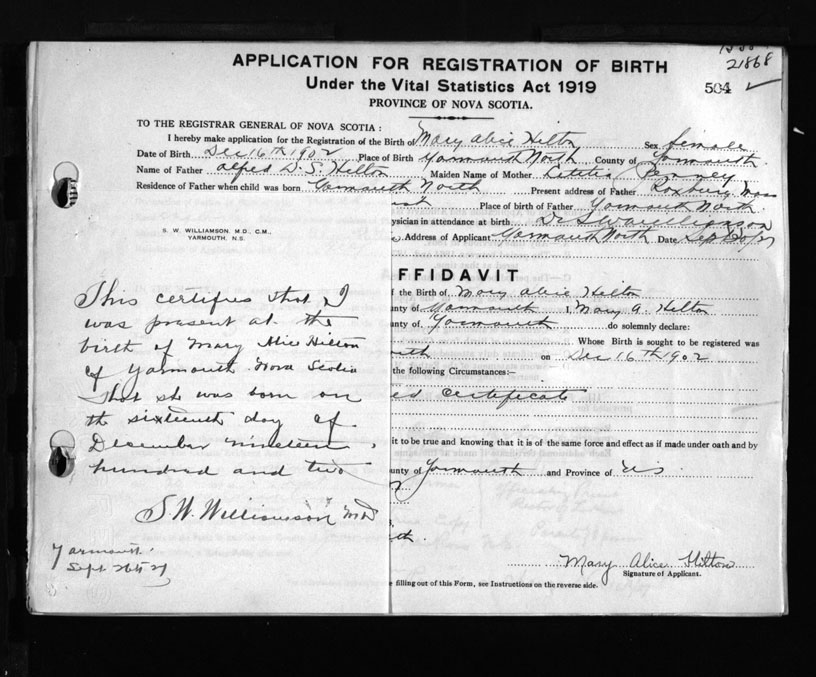 21868
APPLICATION FOR REGISTRATION OF BIRTH
Under the Vital Statistics Act 1919
504
PROVINCE OF NOVA SCOTIA.
TO THE REGISTRAR GENERAL OF NOVA SCOTIA :
I hereby make application for the Registration of the Birth of Mary Alice Hilton Sex female
Date of Birth Dec 16th 1902 Place of Birth Yarmouth North County of Yarmouth
Name of Father Alfred D. S. Hilton Maiden Name of Mother Letetia Penney
Residence of Father when child was born Yarmouth North Present address of Father Roxbury Mass
Place of birth of Father Yarmouth North
ysician in attendance at birth Dr S W Williamson
Address of Applicant Yarmouth North Date Sept
S. W. WILLIAMSON, M.D., C.M.,
YARMOUTH, N.S.
This certifies that I
was present at the
birth of Mary Alice Hilton
of Yarmouth Nova Scotia
That she was born on
the sixteenth day of
December nineteen
hundred and two
S. W. Williamson MD
Yarmouth
Sept 26th 27
FFIDAVIT
f the Birth of Mary Alice Hilton
unty of Yarmouth I, Mary A. Hilton
unty of Yarmouth do solemnly declare:
Whose Birth is sought to be registered was
uth on Dec 16th 1902
the following Circumstances:—
ed certificate
it to be true and knowing that it is of the same force and effect as if made under oath and by
unty of Yarmouth and Province of N S
Mary Alice Hilton
Signature of Applicant.
filling out of this Form, see Instructions on the reverse side.